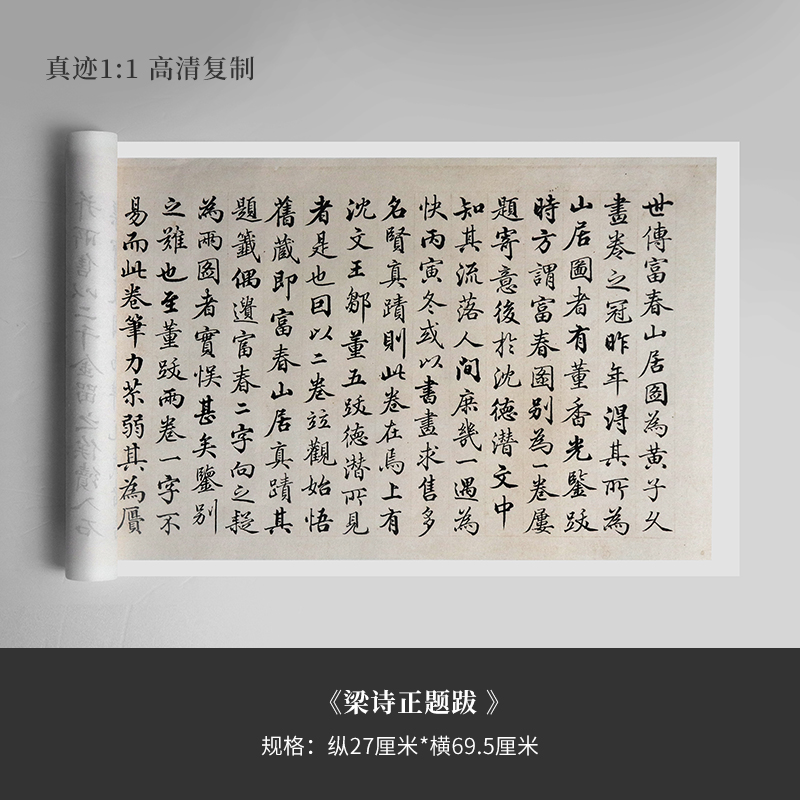 真迹1:1 高清复制
世傳富春山居圖為黃子久
畫卷之冠昨年得其所為
山居圖者有董香光鑒跋
時方謂富春圖别為一卷屢
題寄意後於沈德潛文中
知其流落人間庶幾一遇為
快丙寅冬或以書畫求售多
名賢真蹟則此卷在焉上有
沈文王鄒董五跋德潛所見
者是也回以二卷竝觀始悟
舊蔵即富春山居真蹟其
題籤偶遺富春二字向之疑
為兩圖者實悮甚矣鑒别
之難也至董跋兩卷一字不
易而此卷筆力苶弱其為贋
《梁诗正题跋 》
规格：纵27厘米*横69.5厘米